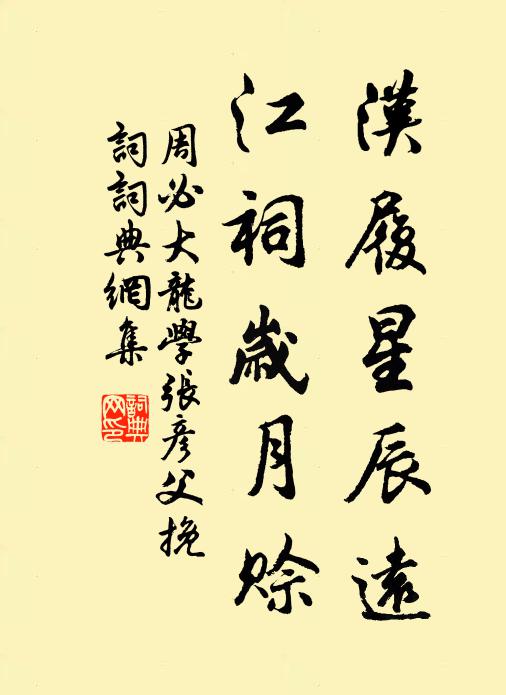 漢履星辰遠
江祠歲月賒
周必大龍學張彥父挽
詞詞典網集